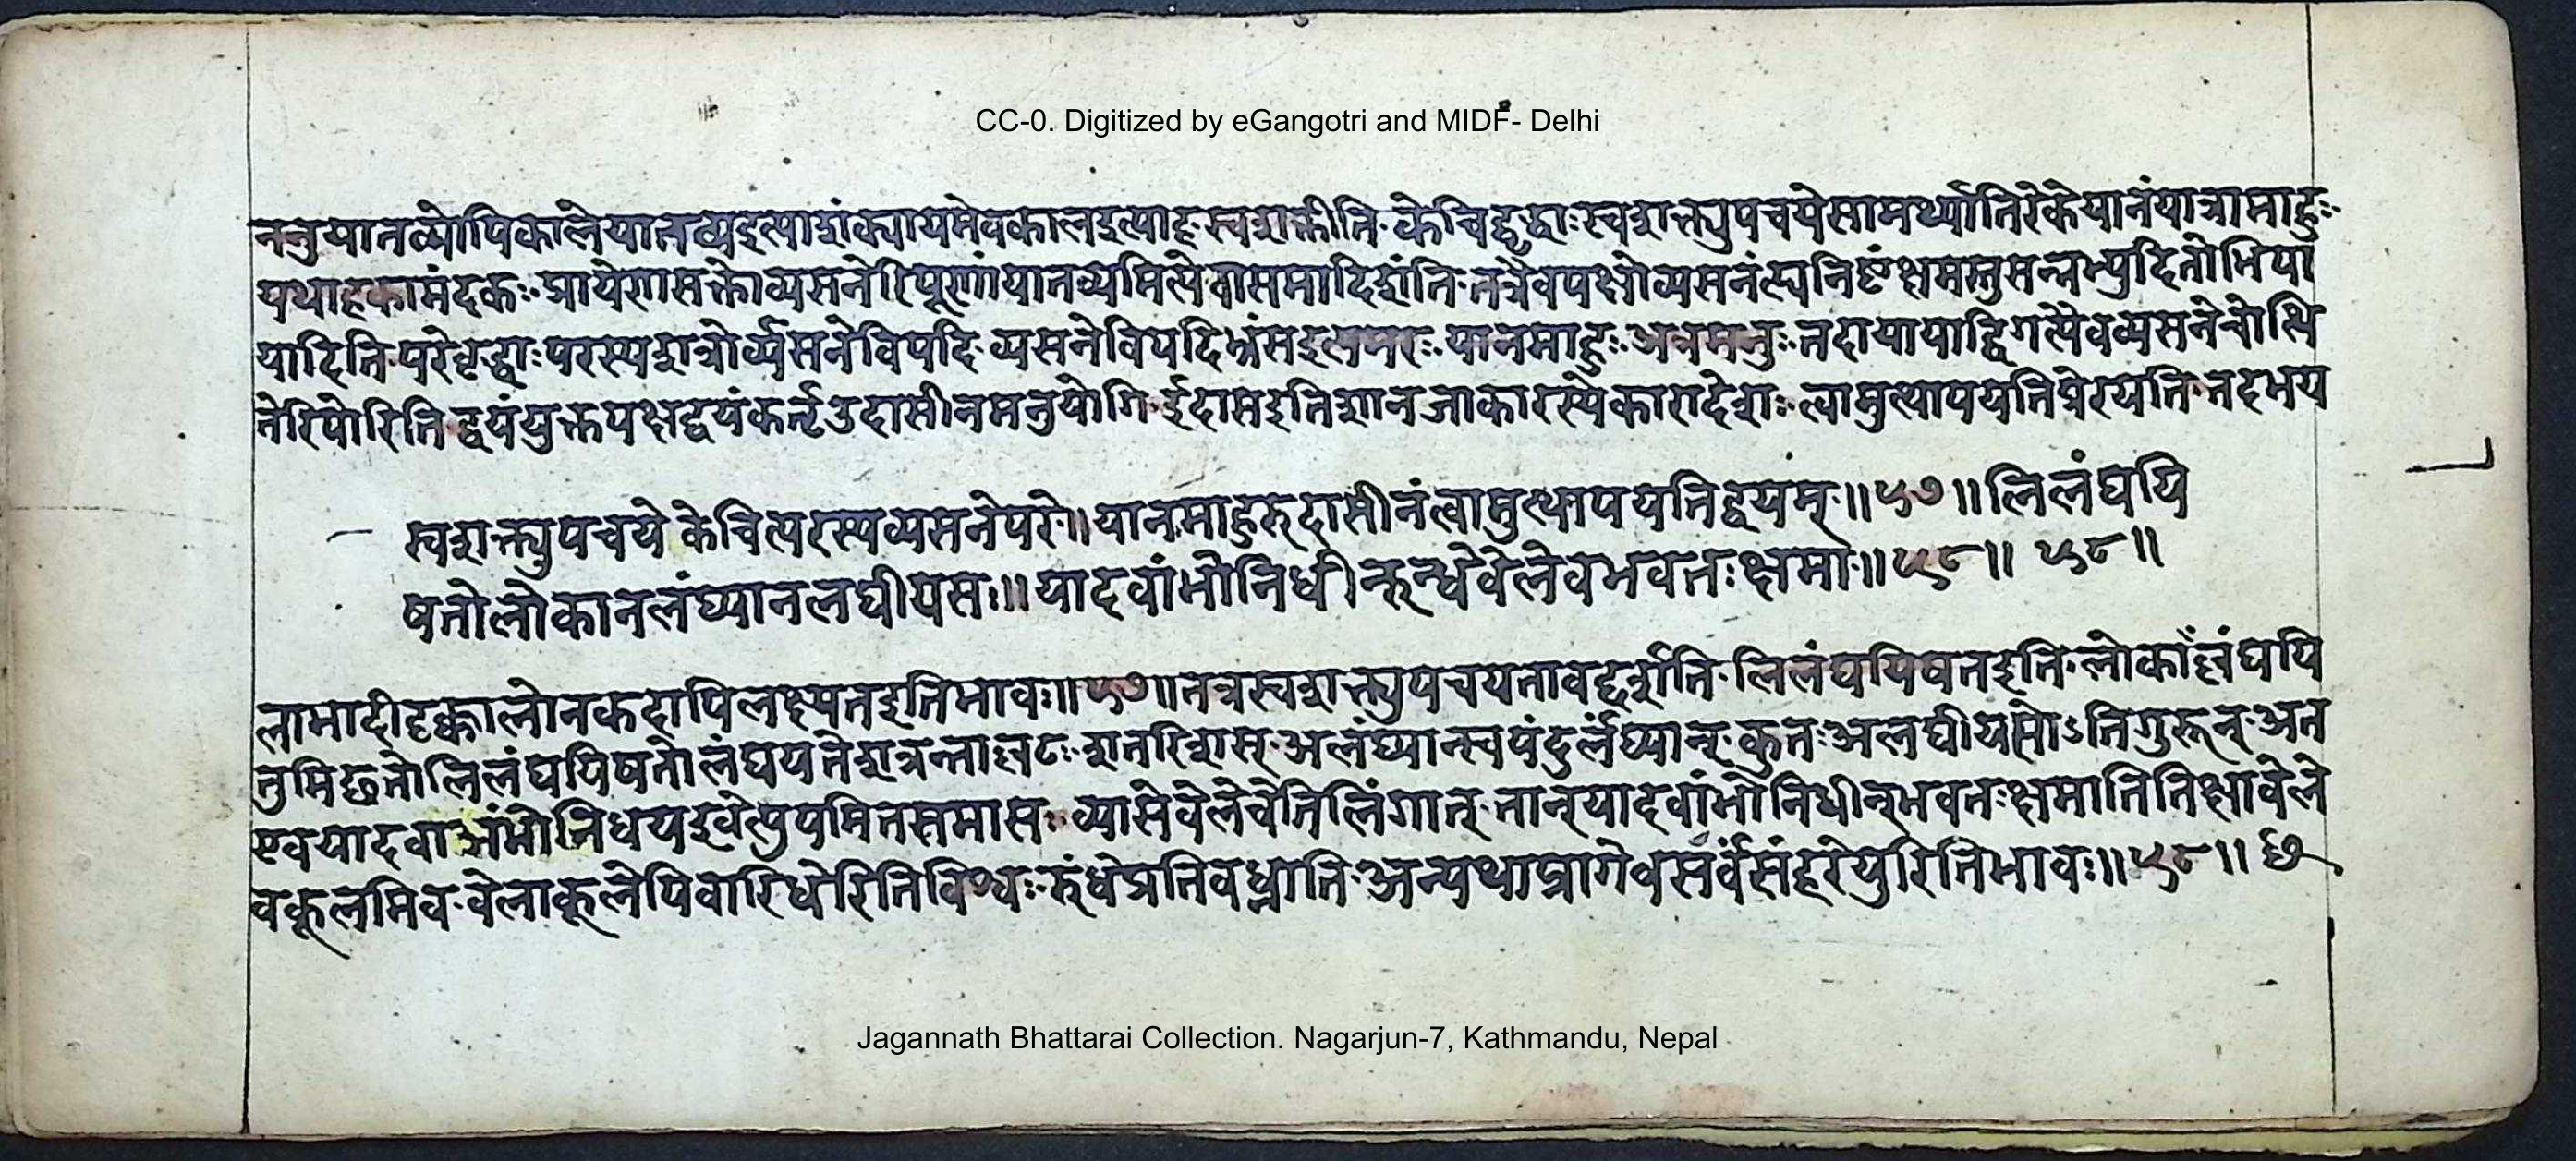 CC-0. Digitized by eGangotri and MIDF- Delhi
ननुयानव्योपिकालेयातव्यइत्याशंक्यायमेवकालइत्याह स्वशक्तीति केचिद्वृद्धाः स्वशक्त्युपचयेसामर्थ्यातिरेकेयानंयात्रामाहुः
यथाहकामंदकः प्रायेणसक्तोव्यसनेरिपूणांयातव्यमित्येवसमादिशंति तत्रैवपक्षोव्यसनं क्षमस्तुसन्नभ्युदितोभिया
यादिति परेवृद्धाः परस्यशत्रोर्व्यसनेविपदि व्यसनेविपदिभ्रंसइत्यमरः यानमाहुः अत्रमनुः तदायायाद्विगृह्यैवव्यसनेचोत्थि
तेरिपोरिति द्वयंयुक्तपक्षद्वयंकर्तृउदासीनमनुयोगि ईदासइतिशानजाकारस्येकारादेशः त्वामुत्थापयतिप्रेरयति तदभय
स्वशक्त्युपचये केचित्परस्यव्यसनेपरे॥ यानमाहुरुदासीनंत्वामुत्थापयतिद्वयम्॥५७॥ लिलंघयि
षतोलोकानलंघ्यानलघीयसः॥ यादवांभोनिधीन्रुन्धेवेलेवभवतःक्षमा॥५८॥ ५८॥
लामादीदृक्कालोनकदापिलक्ष्यतइतिभावः॥५७॥ तत्रस्वशक्त्युपचयतावद्दर्शाति लिलंघयिषतइति लोकांल्लंघयि
तुमिछतोलिलंघयिषतोलंघयतेशत्रन्ताल्लटः शतरिशस् अलंघ्यान्स्वयंदुर्लंघ्यान् कुतः अलघीयसोऽतिगुरून् अत
एवयादवाअंभोनिधयइवेत्युपमितसमासः व्यासेवेलेवेतिलिंगात् तान्यादवांभोनिधीन्भवतःक्षमातितिक्षावेले
वकूलमिव वेलाकूलेपिवारिधेरितिविश्वः रुंधेप्रतिबध्नाति अन्यथाप्रागेवसर्वंसंहरेयुरितिभावः॥५८॥ छ
Jagannath Bhattarai Collection. Nagarjun-7, Kathmandu, Nepal